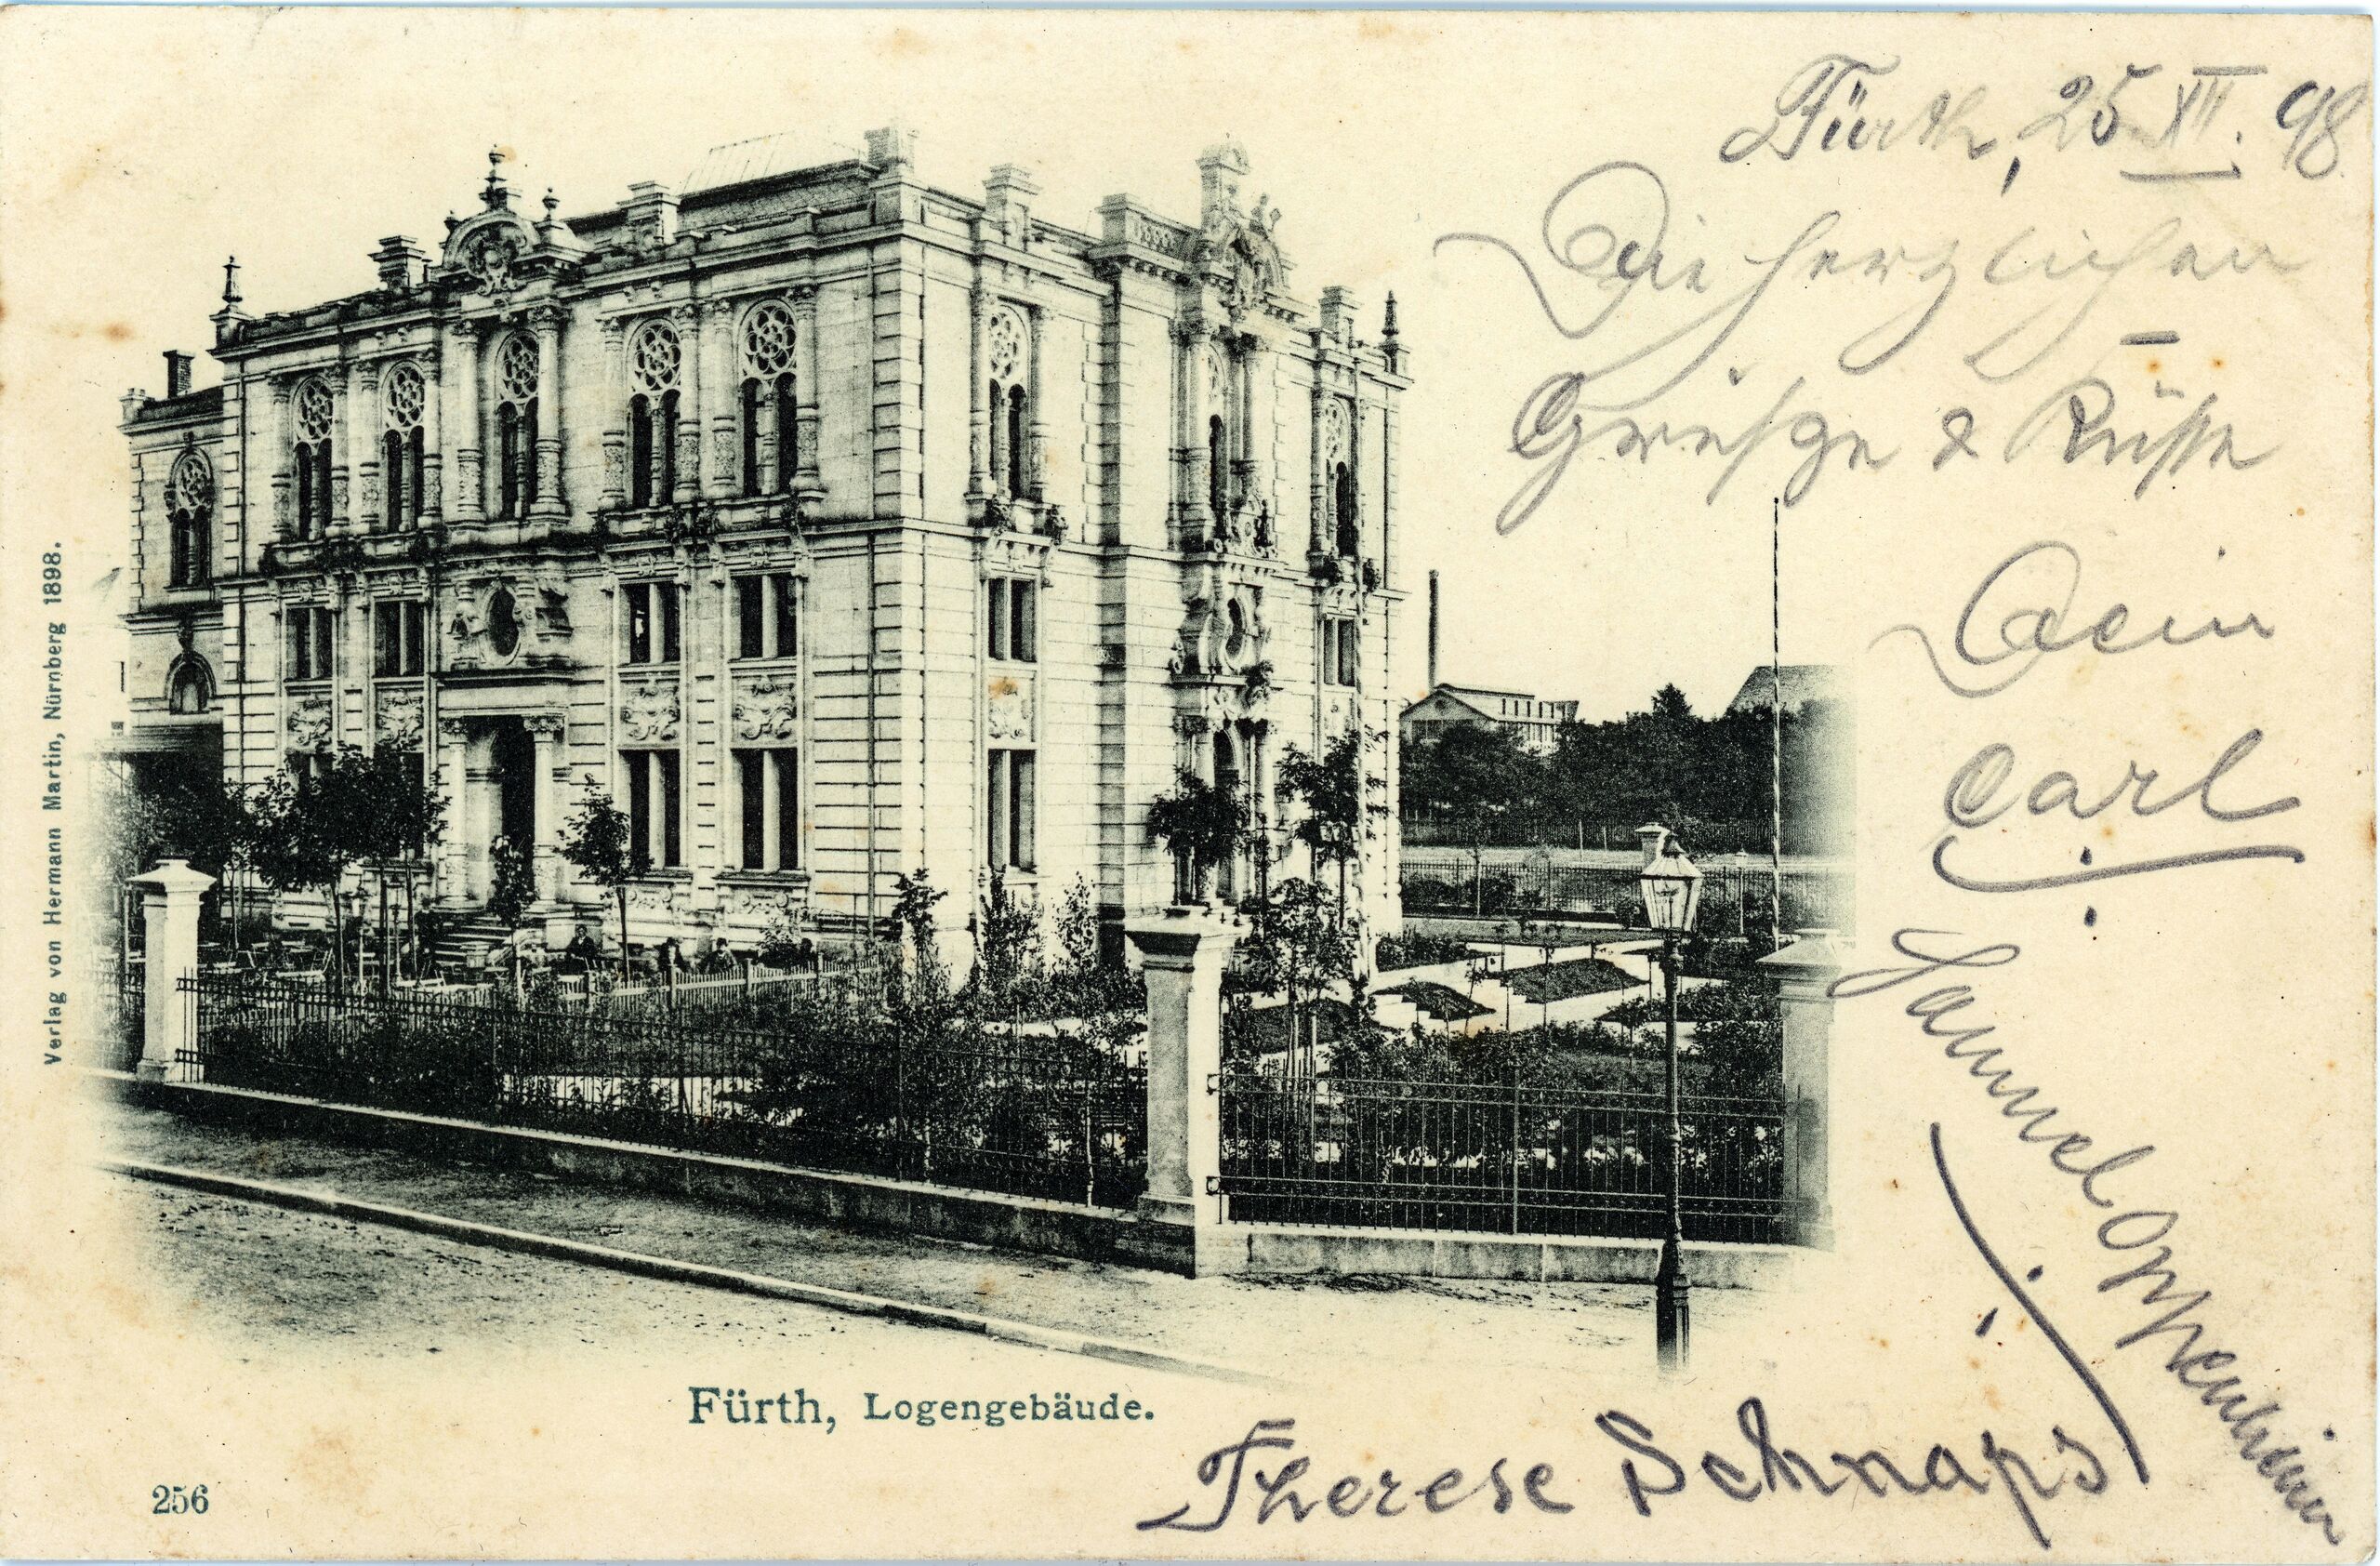 Fürth, 25 XII. 98.
Die herzlichen
Grüße & Küsse
Dein
Carl
Samuel Oppenheim
Therese Schnaps
Fürth, Logengebäude.
256
Verlag von Hermann Martin, Nürnberg 1898.